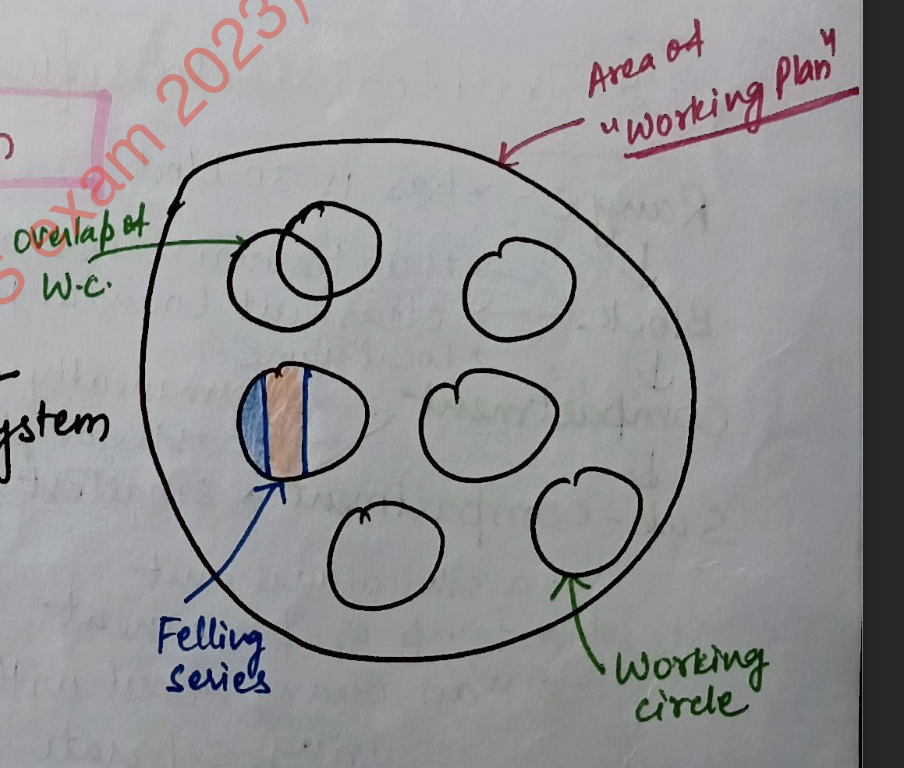 exam 2023)
Area of
"Working Plan"
Overlap of
W.C.
ystem
Felling
series
Working
circle